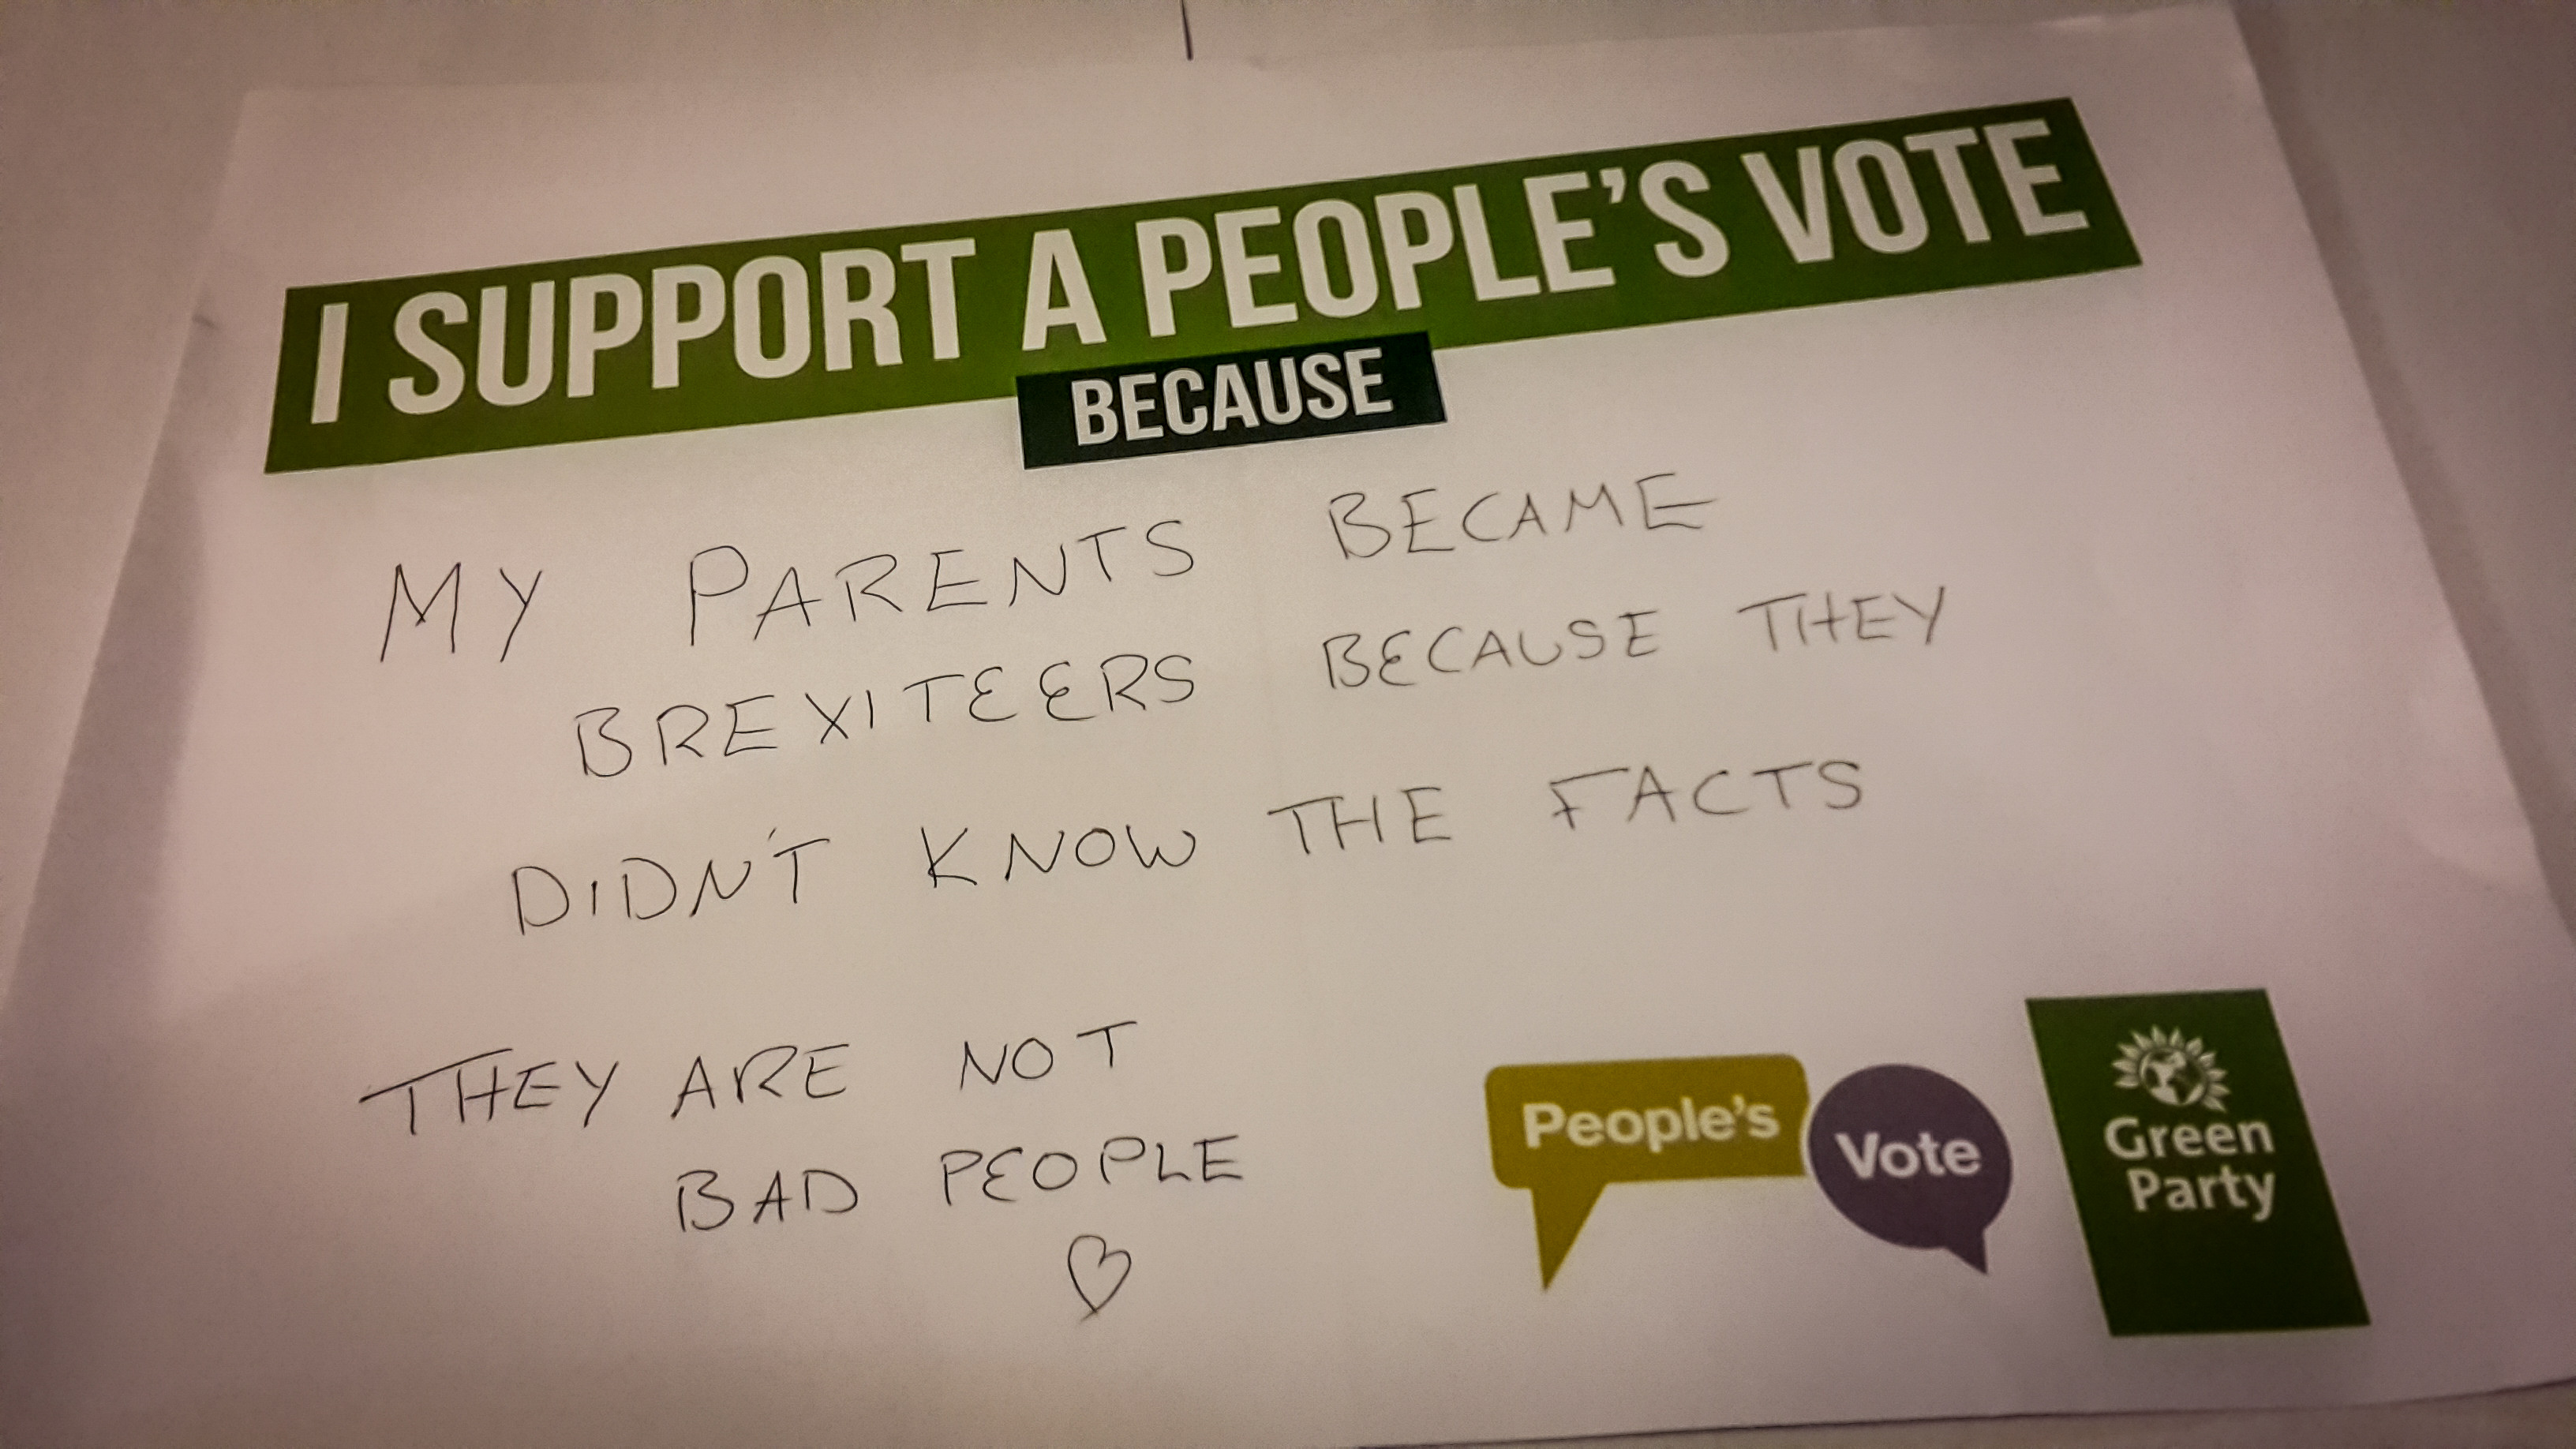 I SUPPORT A PEOPLE'S VOTE
BECAUSE
MY PARENTS BECAME
BREXITEERS BECAUSE THEY
DIDN'T KNOW THE FACTS
THEY ARE NOT
BAD PEOPLE
People's
Vote
Green
Party